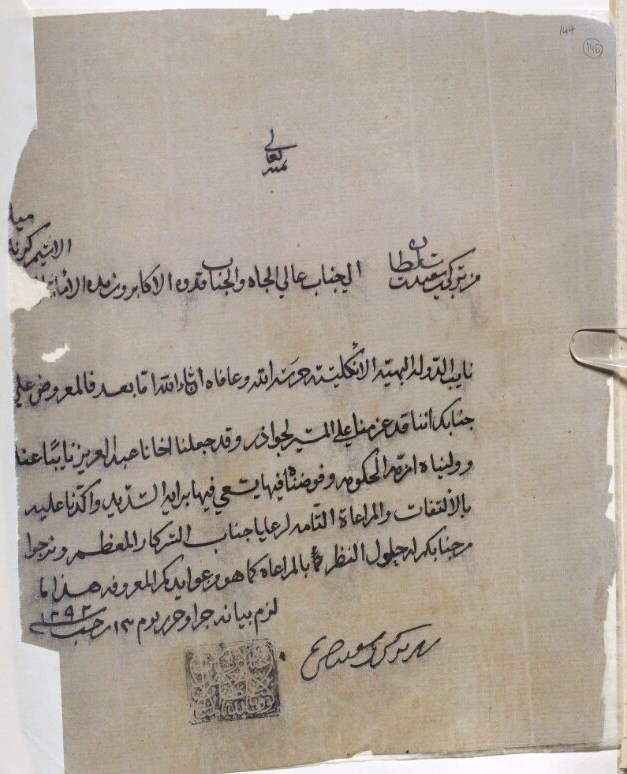 147
146
بمنه تعالى
من تركي بن سعيد بن سلطان الى جناب عالي الجاه والجناب قدوة الاكابر وزبدة الا
ميلس
الاسيم كرنل
نايب الدولة البهية الانكليتية حرسه الله وعافاه ان شاء الله اما بعد فالمعروض على
جنابكم اننا قد عزمنا على المسير لجواذر وقد جعلنا اخانا عبد العزيز نايبًا عنا
وولنياه ازمة الحكومة وفوضناه فيها يسعى فيها برايه السديد واكدنا عليه
بالالتفات والمراعاة التامه لرعايا جناب السركار المعظم ونرجوا
من جنابكم له حلول النظر بالمراعاة كما هو من عوايدكم المعروفة هذا ما
لزم بيانه جرا وحرر يوم ١٣ رجب سنة ١٢٩٢